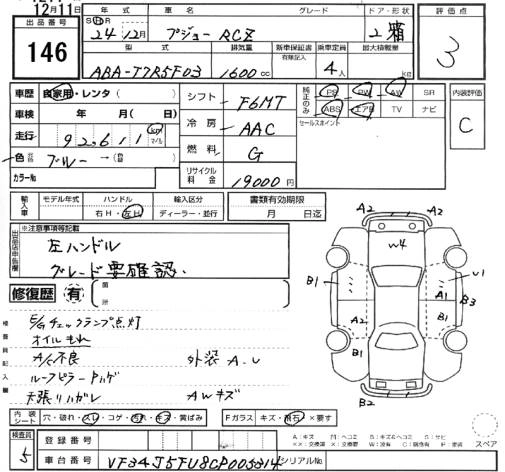 12月11日
出品番号
146
年式 車名 グレード ドア・形状
S H R 24年 12月 プジョー RCZ 2 箱
型式 排気量 新車保証書 有無記入 乗車定員 最大積載量
ABA-T7R5F03 1600cc 4人 kg
評価点
3
車歴 自家用・レンタ ( )
車検 年 月( 日)
走行 92,611 km マイル
色 ブルー → ( )
カラーNo
シフト F6MT
冷房 AAC
燃料 G
リサイクル料金 19000円
純正のみ PS PW AW SR
ABS エアB TV ナビ
セールスポイント
内装評価
C
輸入車 モデル年式 ハンドル 輸入区分
年 右H・左H ディーラー・並行
書類有効期限
月 日迄
出品店申告欄
※注意事項等記載
左ハンドル
グレード要確認。
修復歴 有 箇所
検査員記入欄
E/Gチェックランプ点灯
オイルもれ
A/C不良 外装 A.U
ルーフピラー
天張りハガレ AWキズ
A2 A2
W4
B1 A1 U1 B3
A2 B1 B1
B2
内装シート 穴・破れ・スレ・コゲ・汚れ・キズ・黄ばみ
Fガラス キズ・飛石・×要す
A:キズ M:ヘコミ B:キズ&ヘコミ S:サビ
スペア
検査員 5
登録番号
車台番号 VF34J5FU8CP005314 シリアルNo